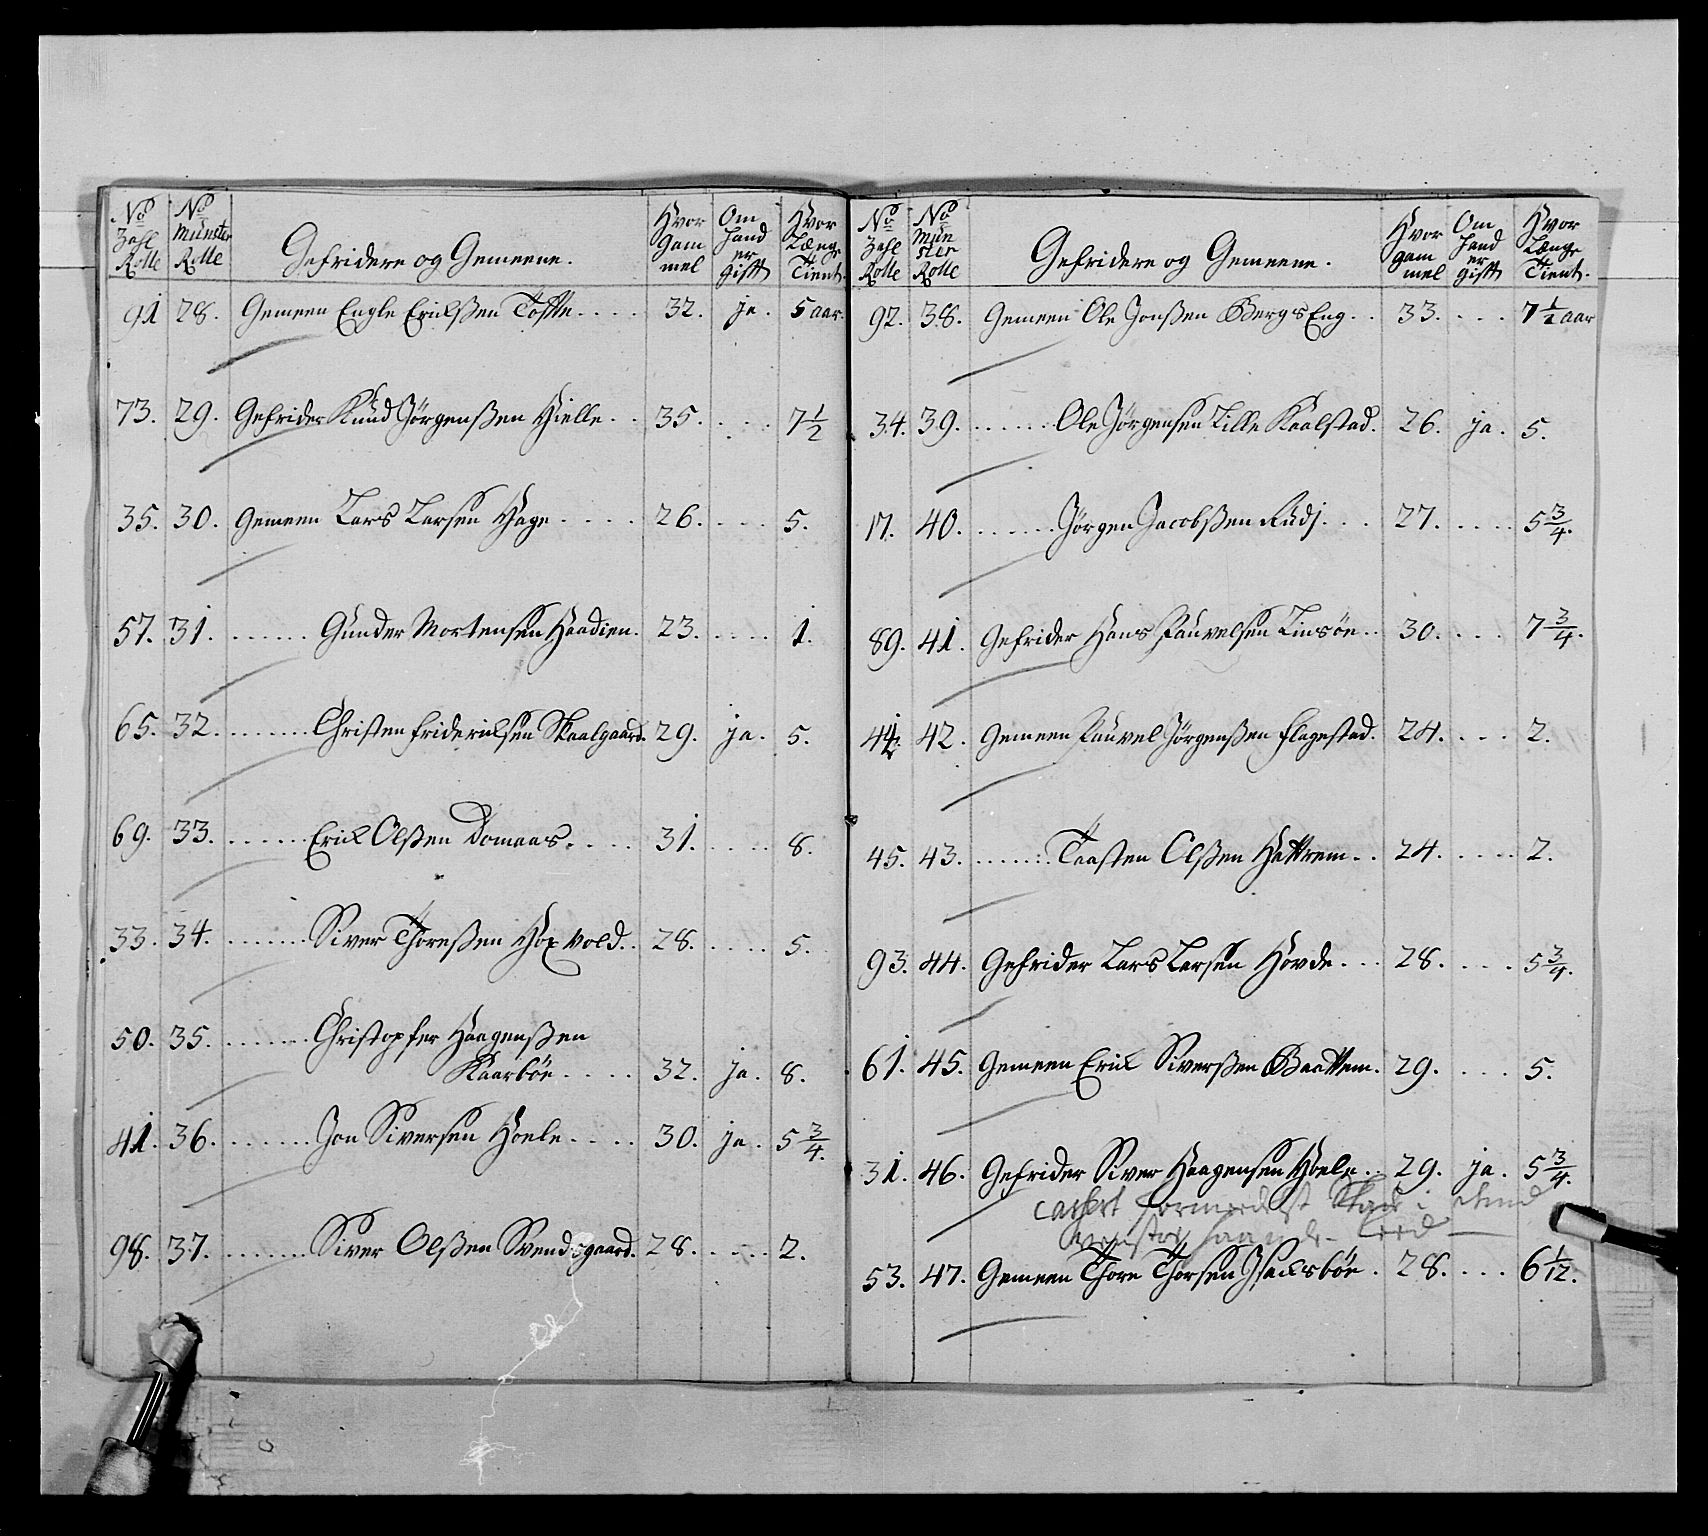 No Zahl Rolle | No Munster Rolle | Gefridere og Gemeene. | Hvor gammel | Om hand er gifft | Hvor Længe Tient.
91 28. Gemeen Engle Ericksen Toffte.... 32. ja. 5 aar.
73. 29. Gefrider Knud Jörgenßen Hielle.. 35. .... 7½
35. 30. Gemeen Lars Larsen Hage.... 26. .... 5.
57. 31. ....... Gunder Mortensen Haadien. 23. .... 1.
65. 32. ....... Christen Fridericksen Skaalgaard. 29. ja. 5.
69. 33. ....... Erick Olßen Domaas.... 31. .... 8.
33. 34. ....... Siver Thoreßen Hoxvold.. 28. .... 5.
50. 35. ....... Christopher Haagenßen
Kaarböe.... 32. ja. 8.
41. 36. ....... Jon Siversen Hoele.... 30. ja. 5¾.
98. 37. ....... Siver Olßen Svendsgaard. 28. .... 2.
No Zahl Rolle | No Munster Rolle | Gefridere og Gemeene. | Hvor gammel | Om hand er gifft | Hvor Længe Tient.
92. 38. Gemeen Ole Jonßen Bergs Eng.. 33. .... 7½ aar
34. 39. ....... Ole Jörgensen Lille Kaalstad. 26. ja. 5.
17. 40. ....... Jörgen Jacobßen Rudj... 27. .... 5¾.
89. 41. Gefrider Hans Pauvelsen Linsöe.. 30. .... 7¾.
42. Gemeen Pauvel Jörgenßen Flagestad. 24. .... 2.
45. 43. ....... Taasten Olßen Hattrem.. 24. .... 2.
93. 44. Gefrider Lars Larsen Hovde... 28. .... 5¾.
61. 45. Gemeen Erick Siverßen Baattem. 29. .... 5.
31. 46. Gefrider Siver Haagensen Hoele.. 29. ja. 5¾.
formedelst Skade i
53. 47. Gemeen Thore Thorsen Isachsböe. 28. .... 6 1/12.